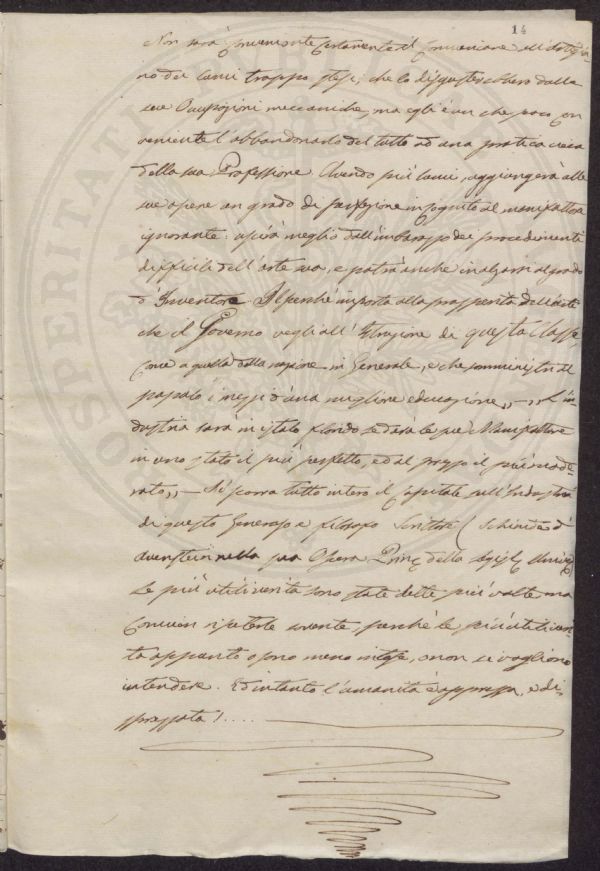 14
Non sarà conveniente certamente il comunicare all'artigia
no dei lumi troppo stesi, che lo disgusterebbero dalle
sue Occupazioni meccaniche, ma egli è an che poco con
veniente l'abbandonarlo del tutto ad una pratica cieca
della sua Professione. Avendo più lumi, aggiungerà alle
sue opere un grado di perfezione incognito al manifattore
ignorante: uscirà meglio dall'imbarazzo dei procedimenti
difficili dell'arte sua, e potrà anche inalzarsi al grado
d'Inventore. Il perchè importa alla prosperità dell'arti
che il Governo vegli all'Istruzione di questa Classe
come a quella della nazione in Generale, e che somministri al
popolo i mezzi d'una migliore educazione,, -,, L'in
dustria sarà in istato florido se darà le sue Manifatture
in uno stato il più perfetto, ed al prezzo il più mode
rato,, - Si scorra tutto intero il Capitale sull'Industria
di questo Generoso e filosofo Scrittore (
nella sua Opera Prinç della
Le più utili verità sono state dette più volte ma
convien ripeterle sovente, perchè le più utili veri
tà appunto o sono meno intese, o non si vogliono
intendere. Ed intanto l'umanità è oppressa, e di
sprezzata!....
PROSPERITATI PUBLICAE